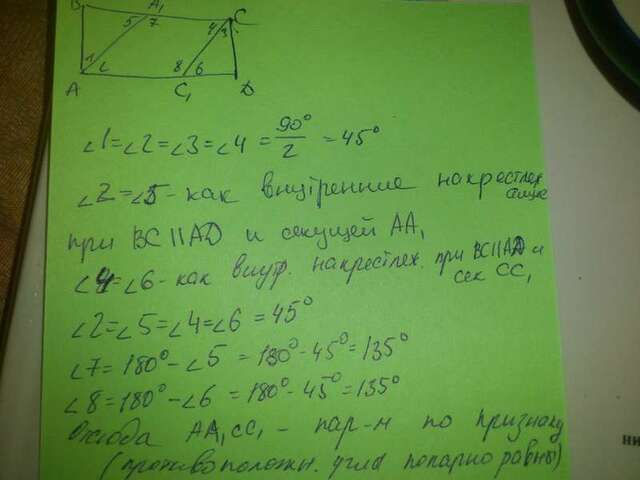 B A₁ C
5 7 4 3
1 2 8 6
A C₁ D
∠1=∠2=∠3=∠4 = 90°/2 = 45°
∠2=∠5 - как внутренние накрестлежащие
при BC||AD и секущей AA₁
∠4=∠6 - как внутр. накрестлеж. при BC||AD и
сек CC₁
∠2=∠5=∠4=∠6 = 45°
∠7=180°-∠5 = 180°-45°=135°
∠8=180°-∠6 = 180°-45°=135°
Отсюда AA₁CC₁ - пар-м по признаку
(противоположн. углы попарно равны)
ни